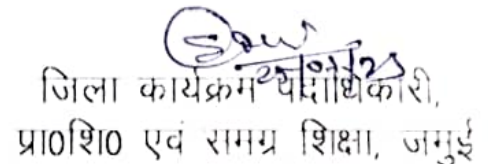 जिला कार्यक्रम पदाधिकारी,
प्रा०शि० एवं समग्र शिक्षा, जमुई